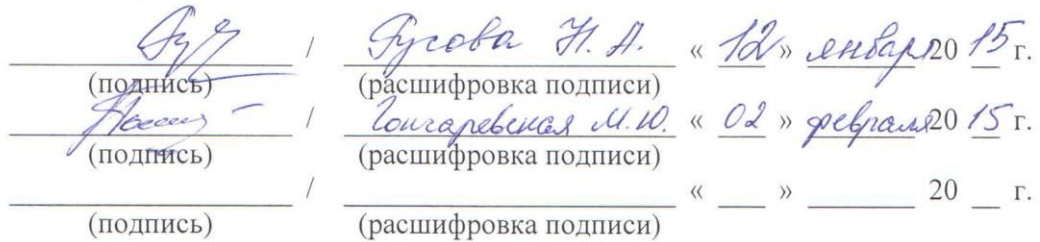 / Гусова Н. А. « 12 » января 20 15 г.
(подпись) (расшифровка подписи)
/ Гончаревская М.Ю. « 02 » февраля 20 15 г.
(подпись) (расшифровка подписи)
/ « » 20 г.
(подпись) (расшифровка подписи)